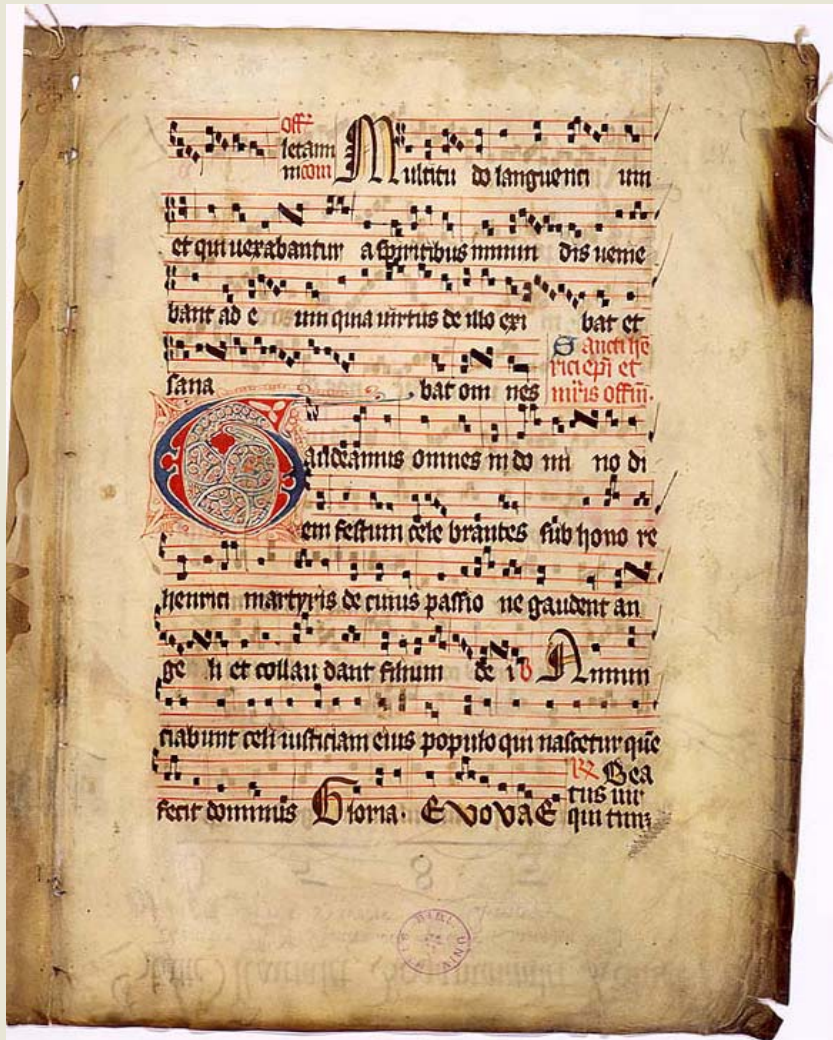 offr
letami
ni com Multitu do languenti um
et qui uexabantur a spiritibus inmun dis uenie
bant ad e um quia uirtus de illo exi bat et
sana bat om nes
Sancti hē
rici epi et
mris offm.
Gaudeamus omnes in do mi no di
em festum cele brantes sub hono re
henrici martyris de cuius passio ne gaudent an
ge li et collau dant filium de i Annun
ciabunt celi iusticiam eius populo qui nascetur quē
fecit dominus Gloria. EVOVAE
Bea
tus uir
qui tim